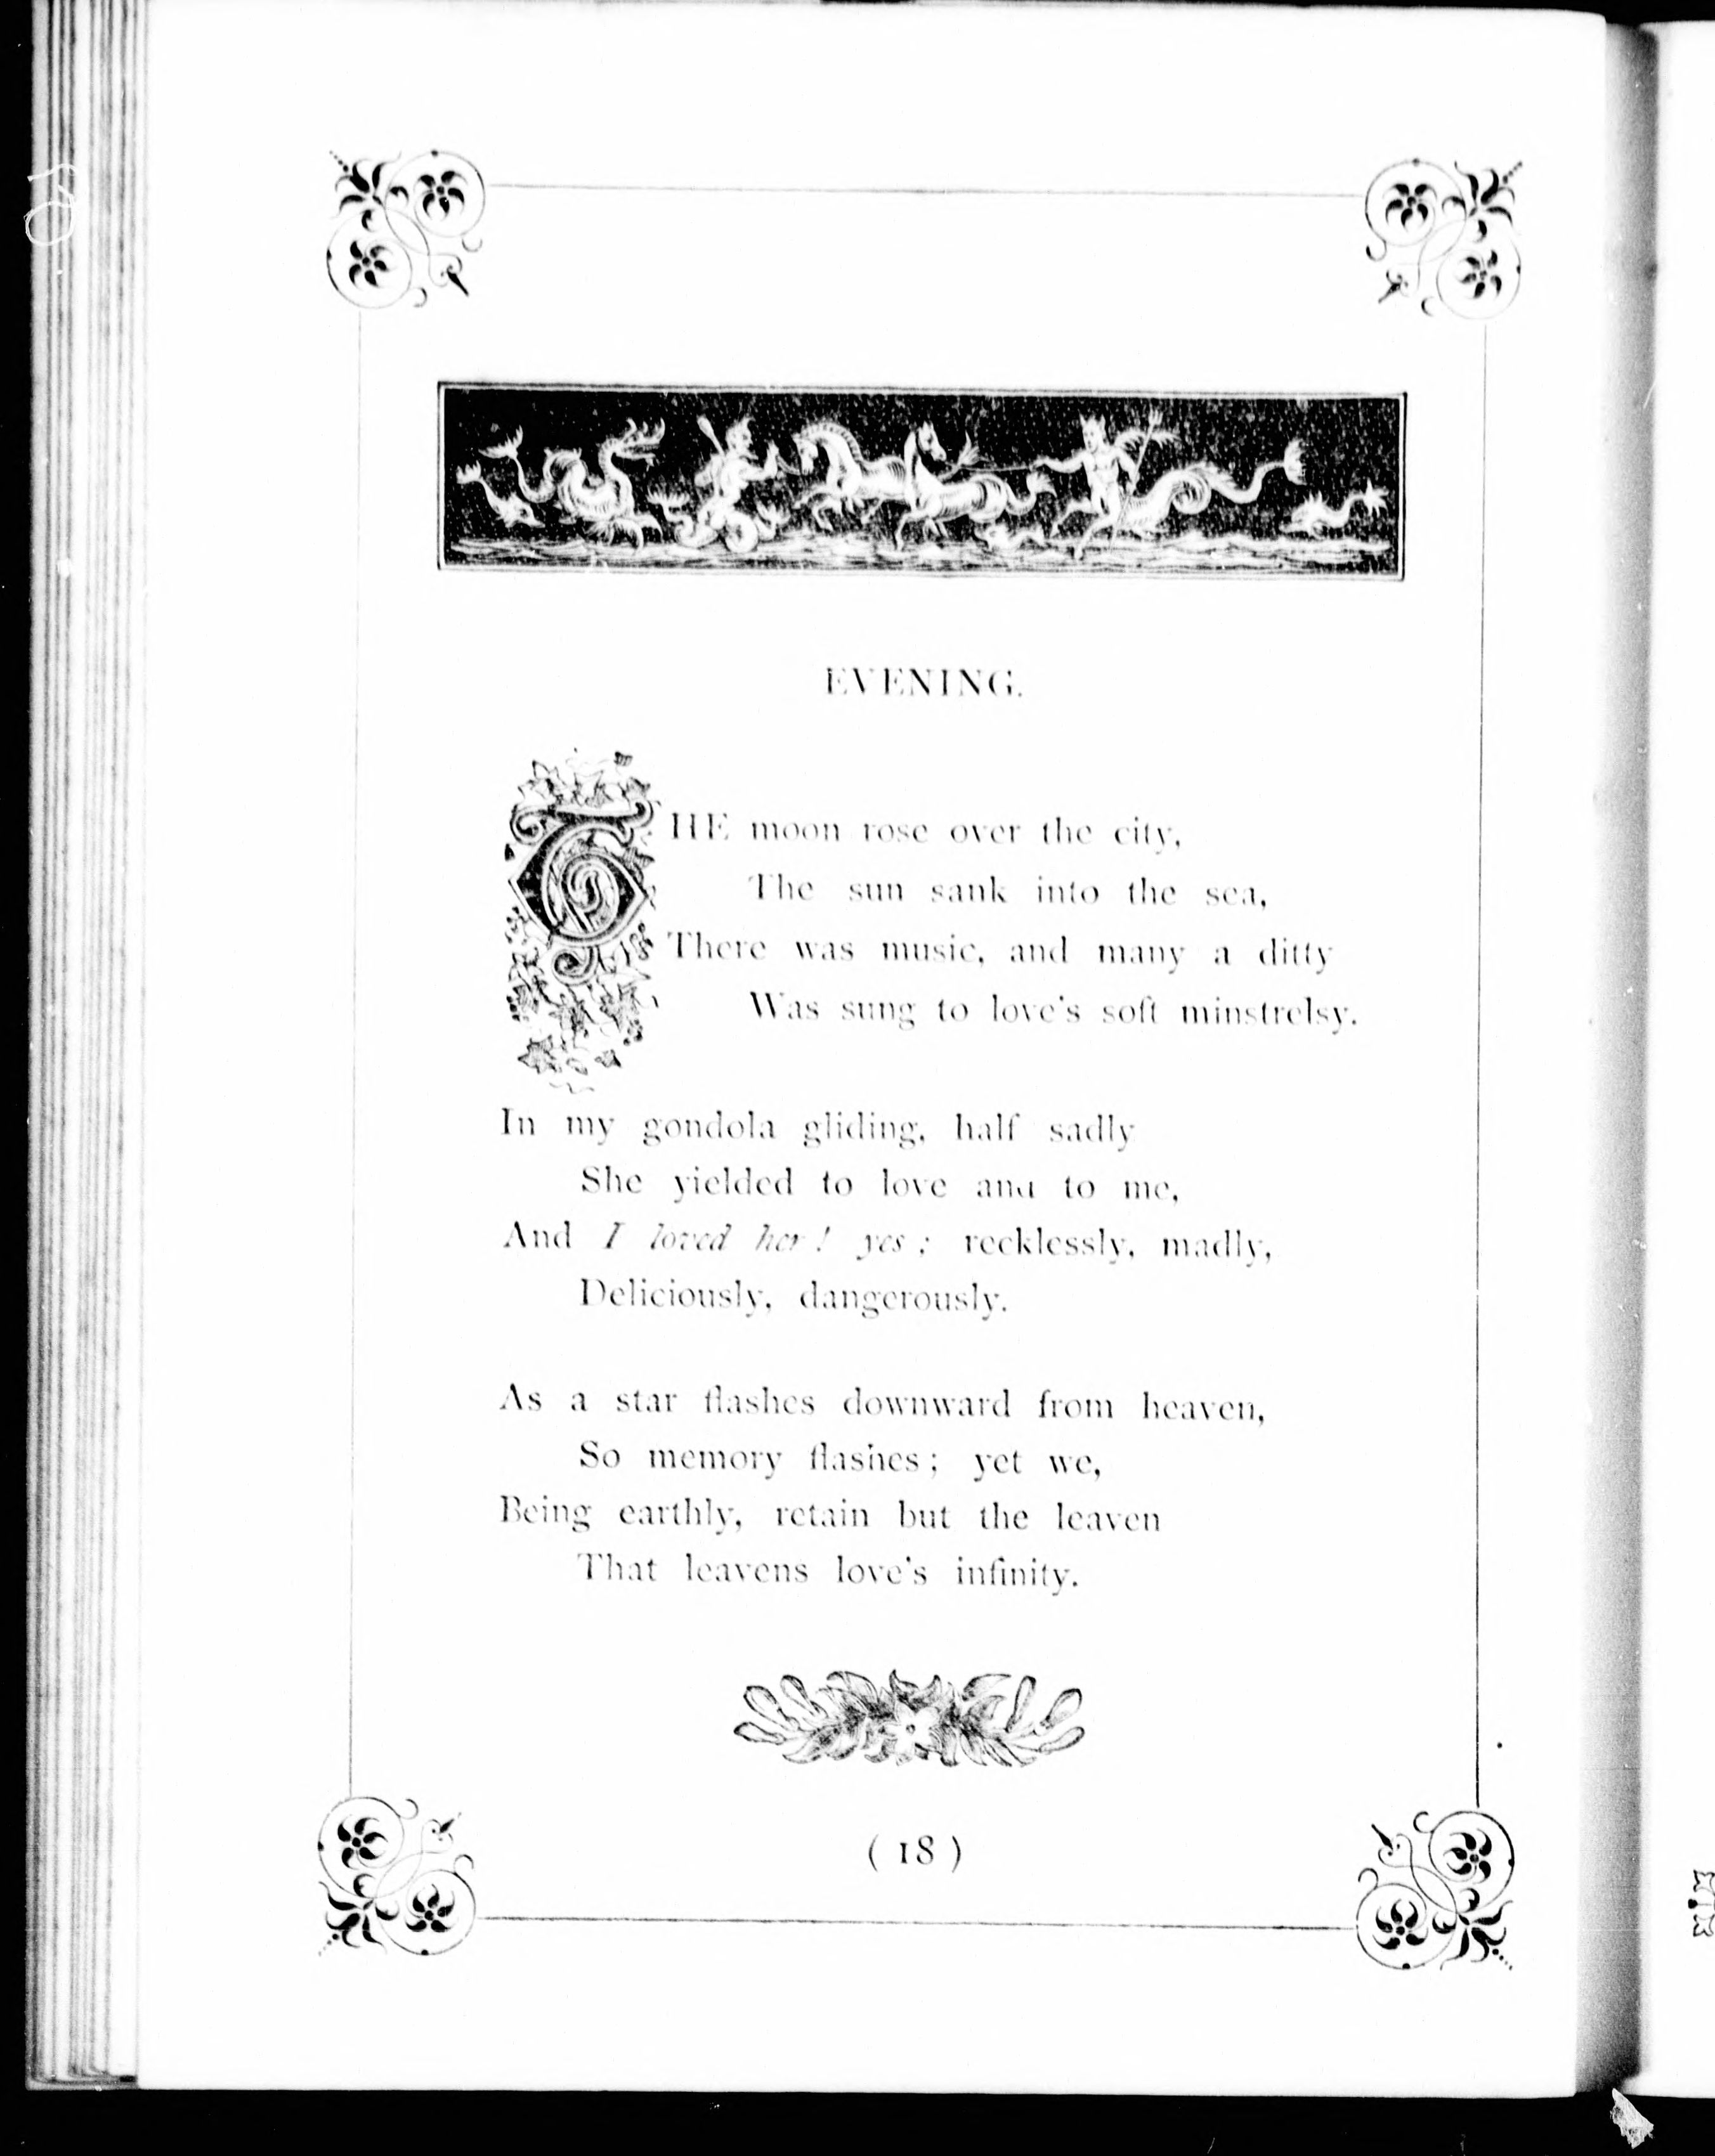 EVENING.
THE moon rose over the city,
The sun sank into the sea,
There was music, and many a ditty
Was sung to love's soft minstrelsy.
In my gondola gliding, half sadly
She yielded to love and to me,
And I loved her! yes; recklessly, madly,
Deliciously, dangerously.
As a star flashes downward from heaven,
So memory flashes; yet we,
Being earthly, retain but the leaven
That leavens love's infinity.
( 18 )